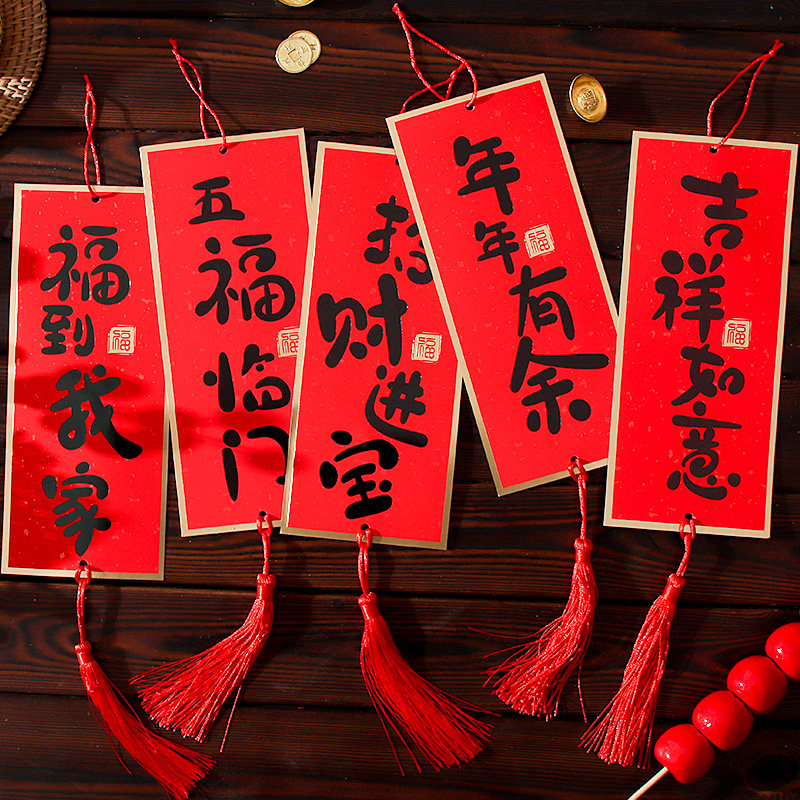 福到我家
福
五福临门
福
招财进宝
福
年年有余
福
吉祥如意
福